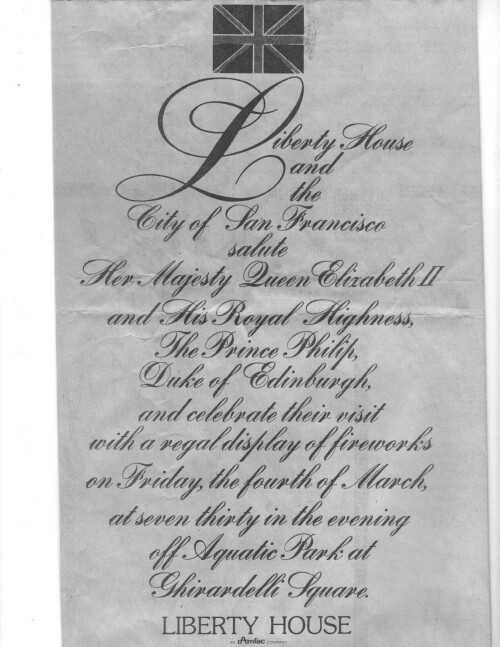 Liberty House
and
the
City of San Francisco
salute
Her Majesty Queen Elizabeth II
and His Royal Highness,
The Prince Philip,
Duke of Edinburgh,
and celebrate their visit
with a regal display of fireworks
on Friday, the fourth of March,
at seven thirty in the evening
off Aquatic Park at
Ghirardelli Square.
LIBERTY HOUSE
AN Amfac COMPANY